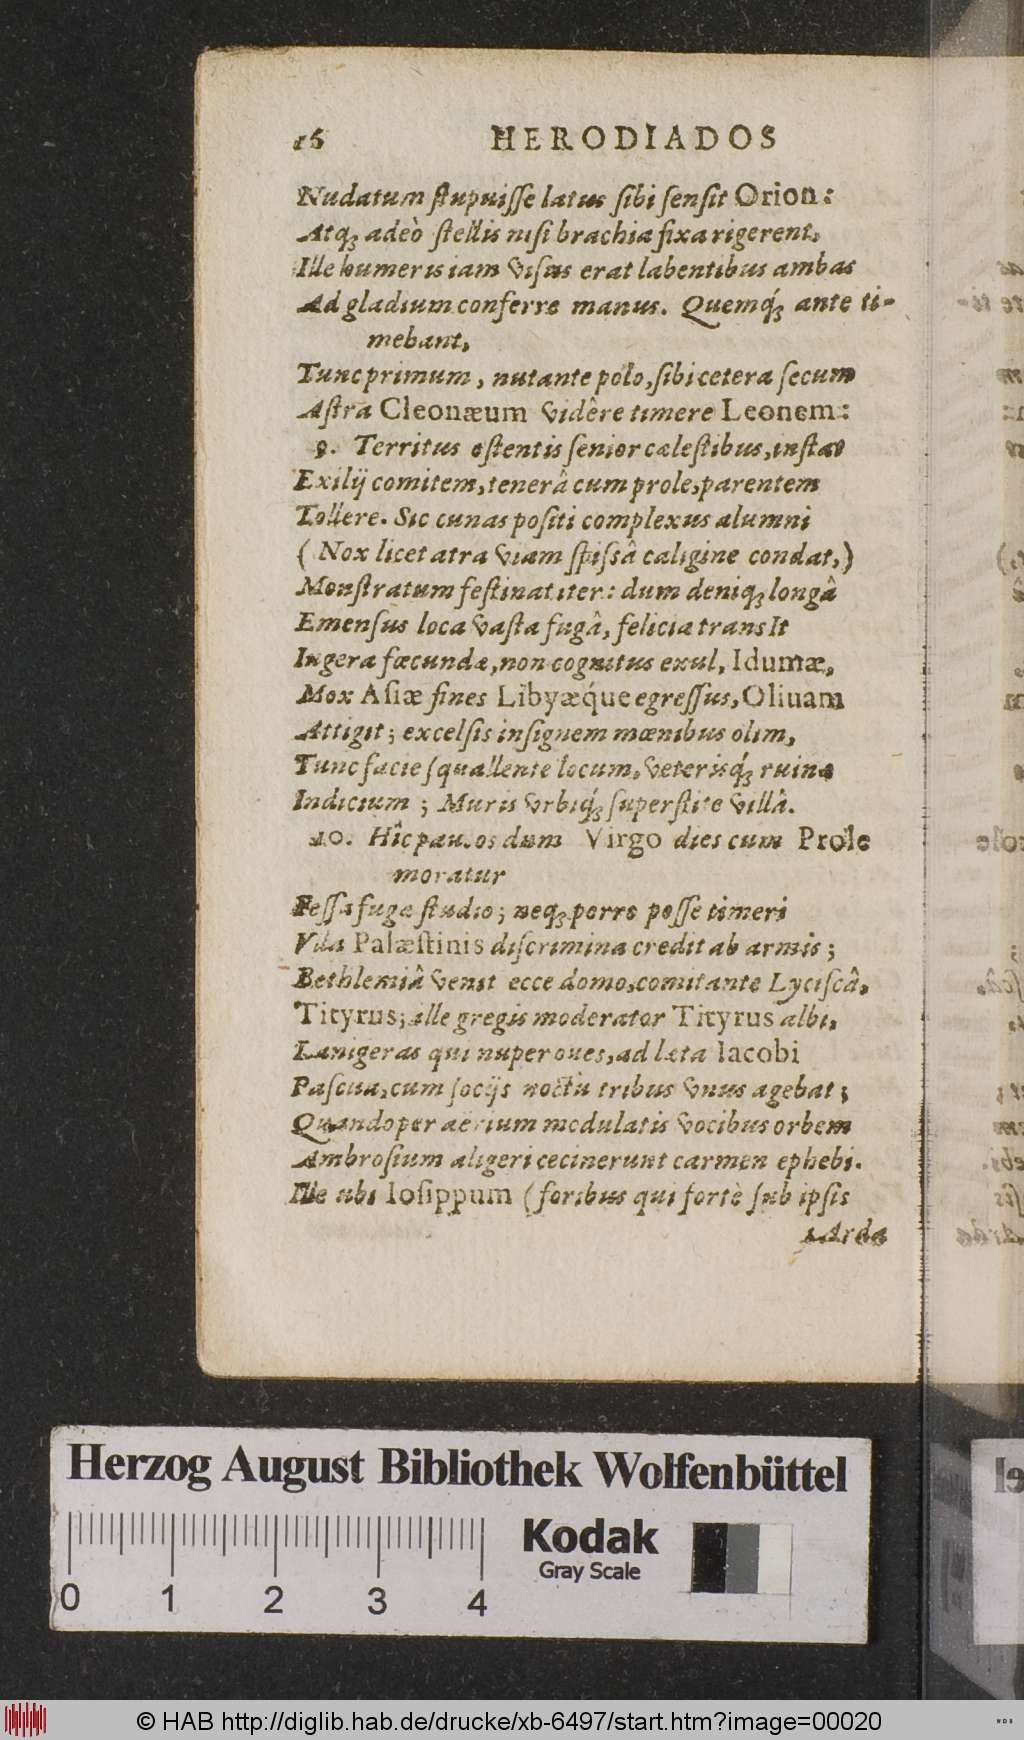 16 HERODIADOS
Nudatum ſtupuiſſe latus ſibi ſenſit Orion:
Atqꝫ adeò ſtellis niſi brachia fixa rigerent,
Ille humeris iam viſus erat labentibus ambas
Ad gladium conferre manus. Quemq́ꝫ ante ti-
mebant,
Tunc primum, nutante polo, ſibi cetera ſecum
Aſtra Cleonæum vidêre timere Leonem:
9. Territus oſtentis ſenior cæleſtibus, inſtat
Exilij comitem, tenerâ cum prole, parentem
Tollere. Sic cunas poſiti complexus alumni
(Nox licet atra viam ſpiſsâ caligine condat,)
Monſtratum feſtinat iter: dum deniqꝫ longâ
Emenſus loca vaſta fugâ, felicia transIt
Iugera fœcundæ, non cognitus exul, Idumæ,
Mox Aſiæ fines Libyæq́ue egreſſus, Oliuam
Attigit; excelſis inſignem mœnibus olim,
Tunc facie ſquallente locum, veterisq́ꝫ ruinæ
Indicium; Muris vrbiq́ꝫ ſuperſtite villâ.
10. Hîc paucos dum Virgo dies cum Prole
moratur
Feſſa fugæ ſtudio; neqꝫ porro poſſe timeri
Vlla Palæſtinis diſcrimina credit ab armis;
Bethlemiâ venit ecce domo, comitante Lyciſcâ,
Tityrus; ille gregis moderator Tityrus albi,
Lanigeras qui nuper oues, ad læta Iacobi
Paſcua, cum ſocijs noctu tribus vnus agebat;
Quando per aërium modulatis vocibus orbem
Ambroſium aligeri cecinerunt carmen ephebi.
Ille ubi Ioſippum (foribus qui fortè ſub ipſis
Arda
Herzog August Bibliothek Wolfenbüttel
Kodak
Gray Scale
0 1 2 3 4
© HAB http://diglib.hab.de/drucke/xb-6497/start.htm?image=00020